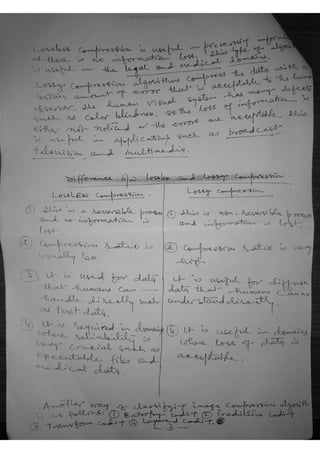 Lossless Compression is useful in preserving
as there is no information loss. This type of
is useful in the legal and medical domains.
Lossy Compression algorithms compress the data with a
certain amount of error that is acceptable to the human
observer. The human visual system has many defects
such as color blindness. So the loss of information is
either not noticed or the errors are acceptable. This
is useful in applications such as broadcast
television and multimedia.
Difference b/w lossless and Lossy Compression
Lossless Compression.
① This is a reversible process
and no information is
lost
② Compression Ratio is
usually low.
③ It is used for data
that humans can
handle directly such
as text data.
④ It is required in domains
where reliability is
very crucial such as
executable files and
medical data.
Lossy Compression
① This is non-reversible process
and information is lost
② Compression Ratio is very
high.
It is useful for diffuse
data that humans
understand directly.
④ It is useful in domains
where loss of data is
acceptable.
Another way of classifying image compression
is as follows: ① Entropy coding ② Predictive coding
③ Transform coding ④ Layered coding.
3